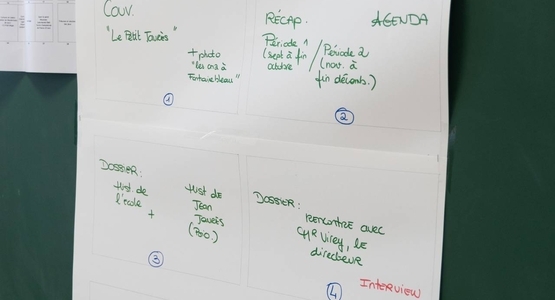 COUV.
"Le Petit Jaurès"
+ photo
"les cm2 à
Fontainebleau"
1
RÉCAP.
AGENDA
Période 1
(sept à fin
octobre
/
Période 2
(nov. à
fin décemb.)
2
DOSSIER:
Hist. de
l'école
+
Hist de
Jean
Jaurès
3
DOSSIER:
RENCONTRE AVEC
Mr Virey, le
directeur
INTERVIEW
4